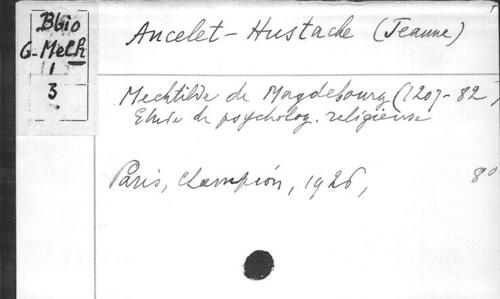 Bbio
G-Melh
1
3
Ancelet-Hustache (Jeanne)
Mechtilde de Magdebourg (1207-82)
Etude de psycholog. religieuse
Paris, Champion, 1926, 8°